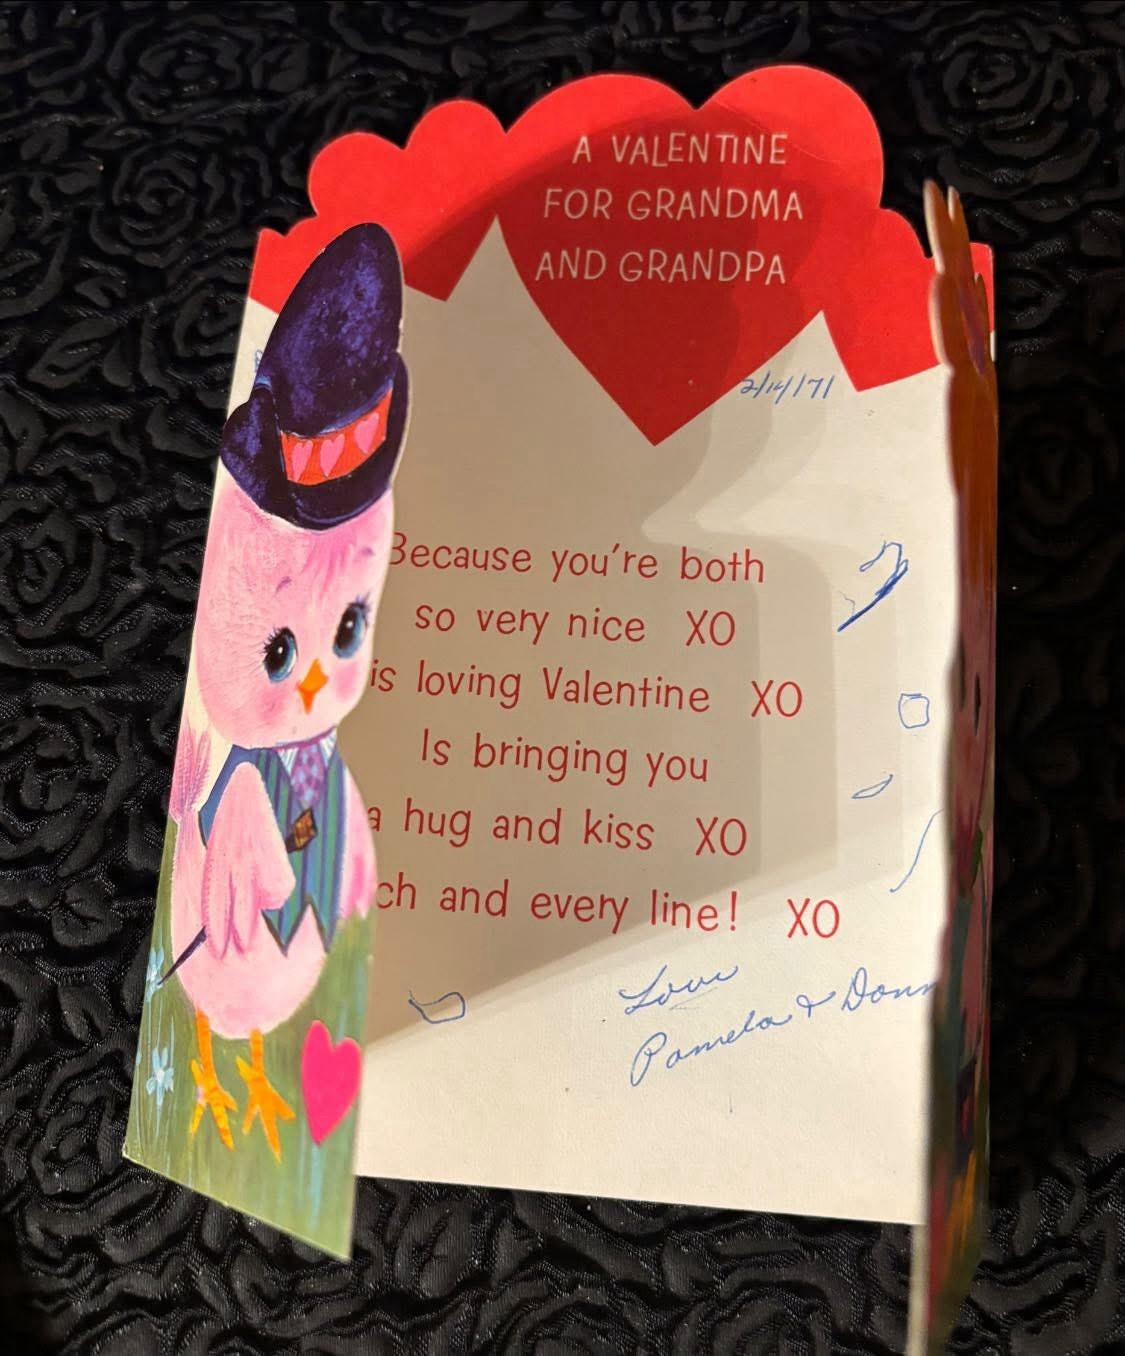 A VALENTINE
FOR GRANDMA
AND GRANDPA
2/14/71
Because you're both
so very nice XO
is loving Valentine XO
Is bringing you
a hug and kiss XO
ch and every line! XO
Love
Pamela & Donn